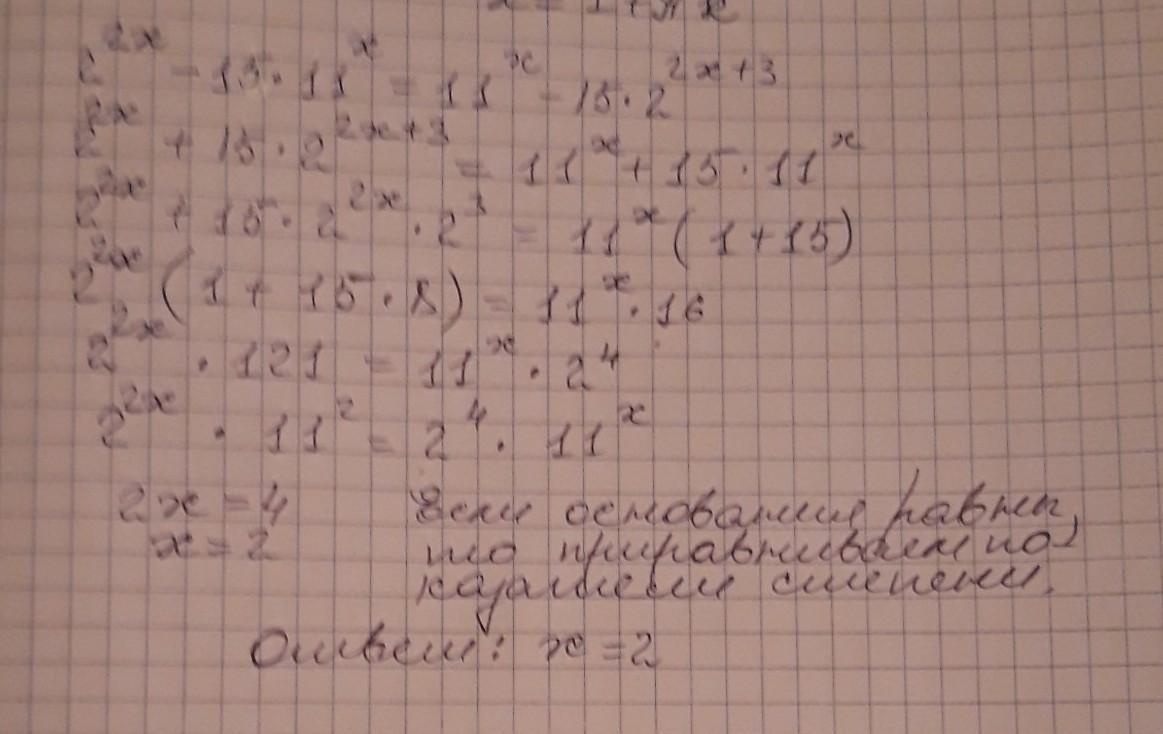 2^{2x} - 15 · 11^x = 11^x - 15 · 2^{2x+3}
2^{2x} + 15 · 2^{2x+3} = 11^x + 15 · 11^x
2^{2x} + 15 · 2^{2x} · 2^3 = 11^x (1+15)
2^{2x} (1 + 15 · 8) = 11^x · 16
2^{2x} · 121 = 11^x · 2^4
2^{2x} · 11^2 = 2^4 · 11^x
2x = 4 Если основания равны,
x = 2 то приравниваем по-
казатели степени.
Ответ: x = 2